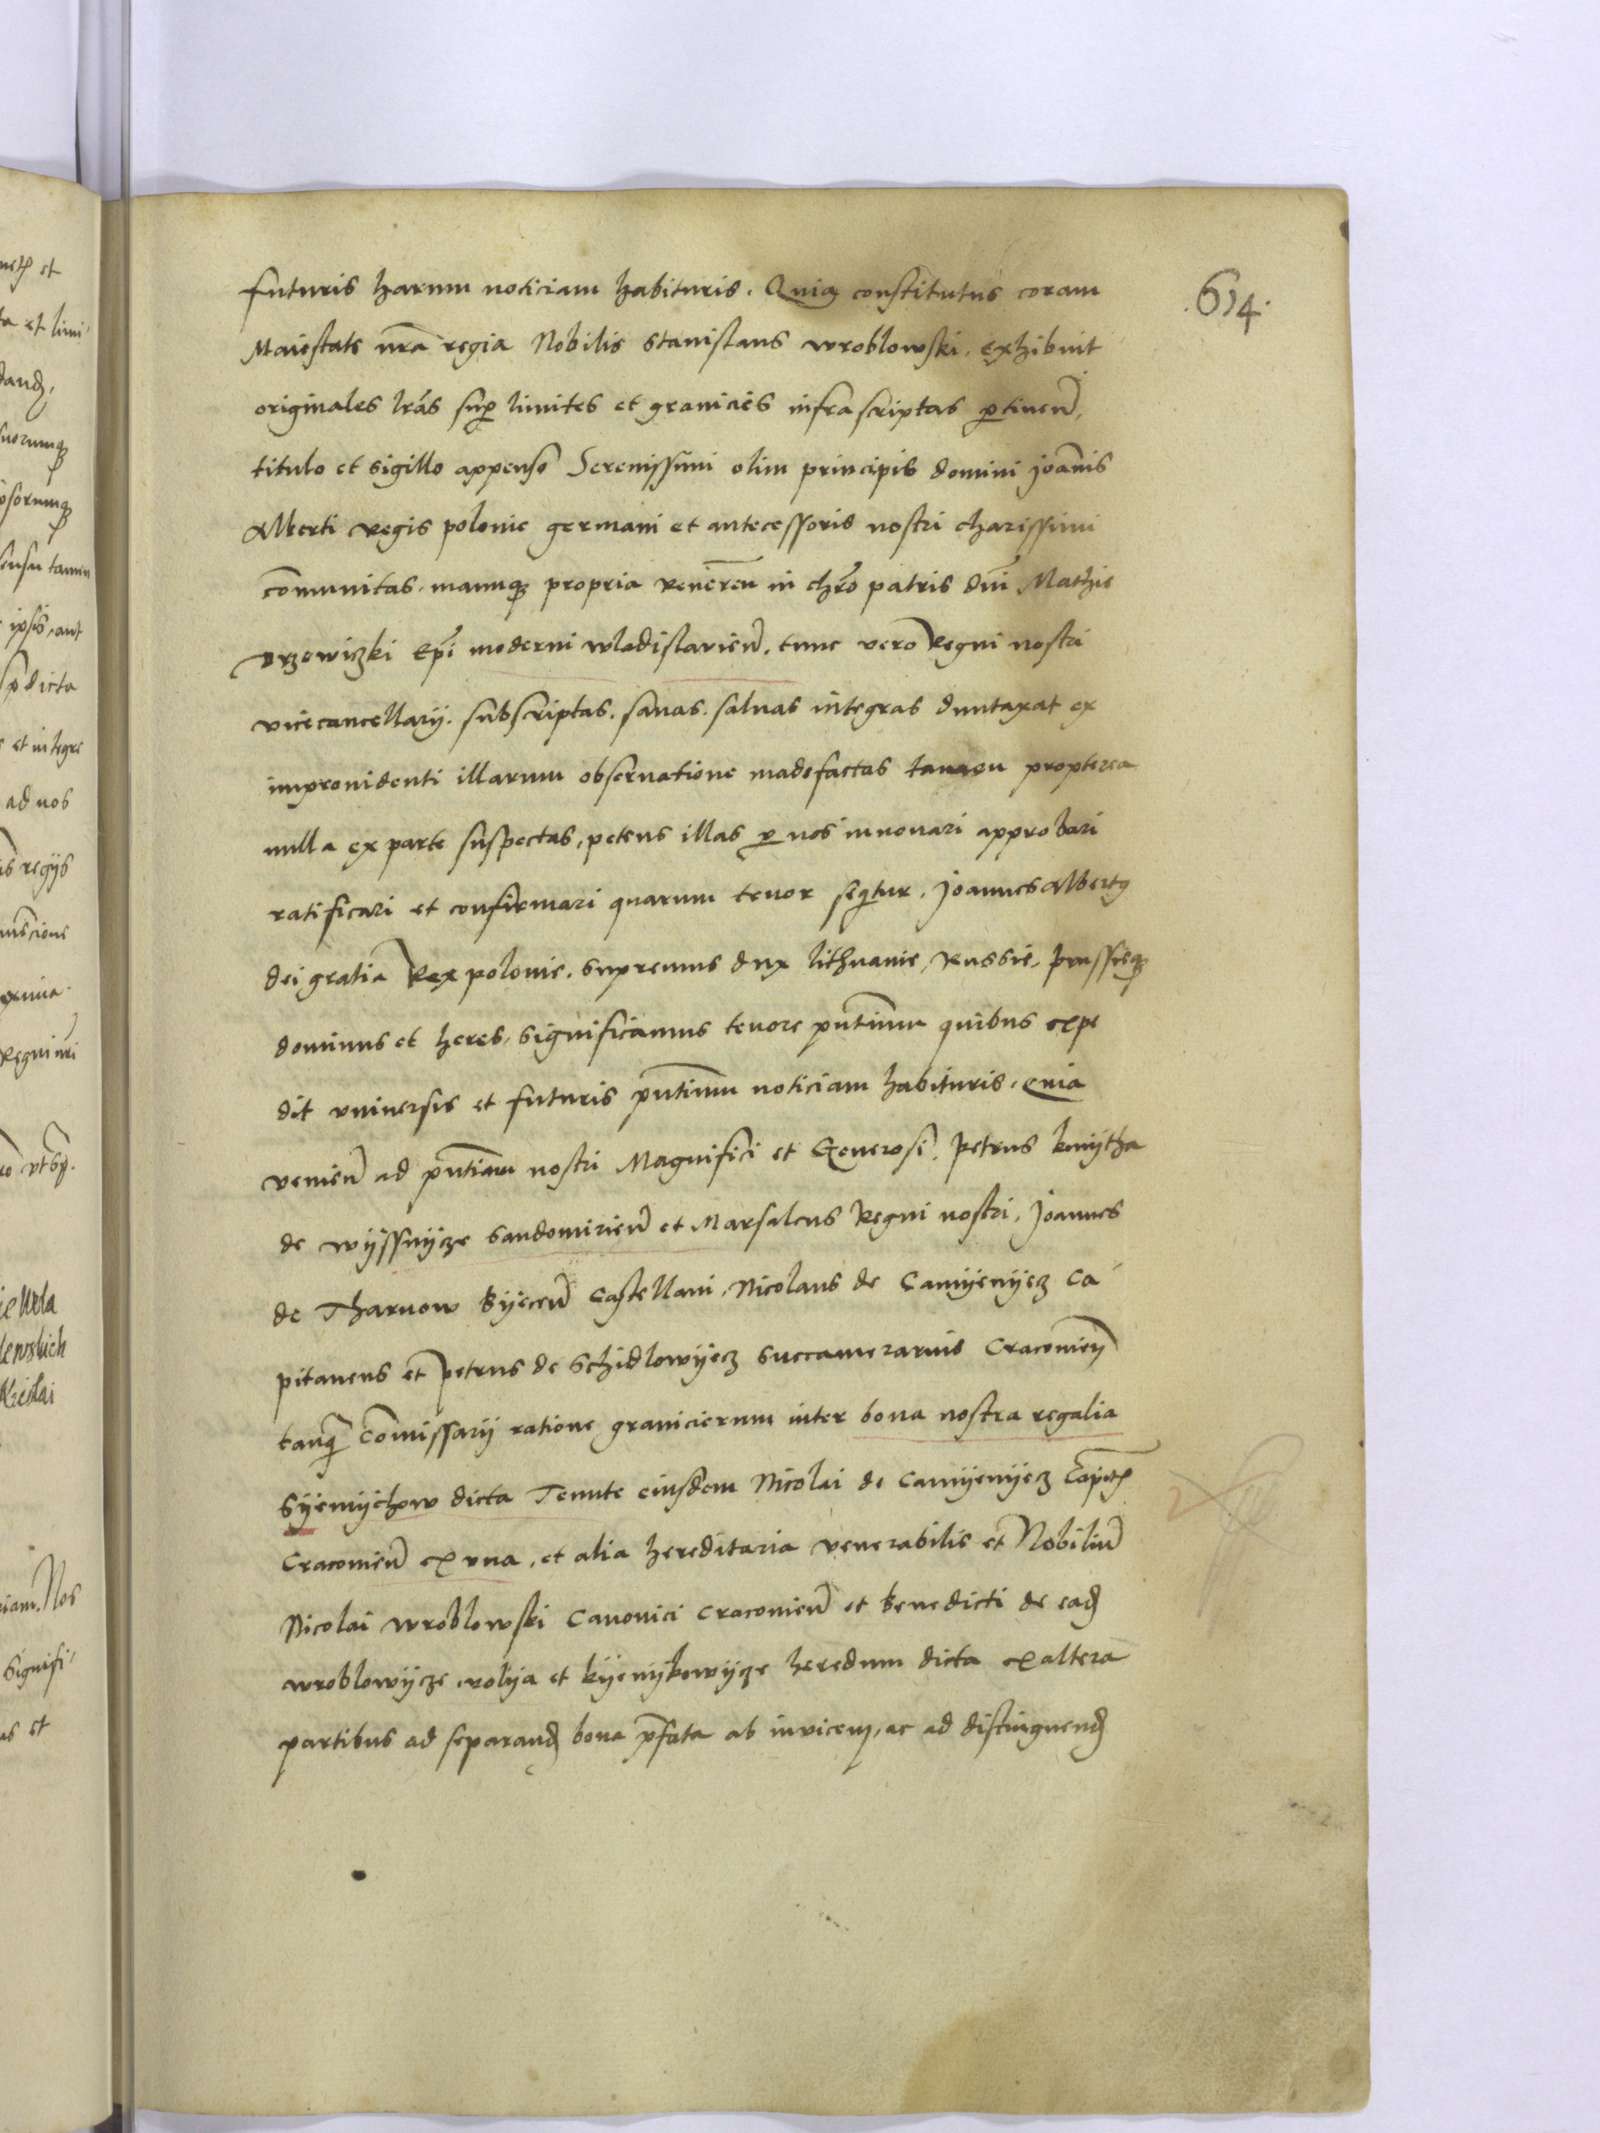 .614.
futuris harum noticiam habituris. Quia constitutus coram
Maiestate nrā regia Nobilis Stanislaus wroblowski, exhibuit
originales lrās sup limites et granicies infrascriptas ptineñ,
titulo et sigillo appenso Serenissimi olim principis domini Joānis
Alberti Regis polonie germani et antecessoris nostri charissimi
cōmunitas, manuq propria Reneren in chro patris dni Mathie
Drzewiczki Epi moderni wladislavieñ, tunc vero Regni nostri
vicecancellarij. subscriptas. sanas. saluas integras duntaxat ex
improuidenti illarum obseruatione madefactas tamen propterea
nulla ex parte suspectas, petens illas p nos innouari approbari
ratificari et confirmari quarum tenor seqtur. Joannes Albertq
dei gratia Rex polonie. supremus dux lithuanie, Russie, prussieq
dominus et heres, significamus tenore pntium quibus expe
dit vniuersis et futuris pntium noticiam habituris. Quia
venieñ ad pntiam nostri Magnifici et Generosi, Petrus kmijtha
de wijssnijcze Sandomirieñ et Marsalcus Regni nostri, Joannes
de Tharnow Bijeceñ Castellani, Nicolaus de Camijenijecz Ca
pitaneus et Petrus de Schidlowijecz Succamerarius Cracouieñ
tanq Cōmissarij ratione graniciernm inter bona nostra regalia
Sijemijchow dicta Tenute eiusdem Nicolai de Camijenijecz Capit
Cracouieñ ex vna, et alia hereditaria venerabilis et Nobiliu
Nicolai wroblowski Canonici Cracouieñ et Benedicti de ead
wroblowijcze, volija et kijenijkowijcze heredum dicta ex altera
partibus ad separand bona pfata ab inuicem, ac ad distinguend